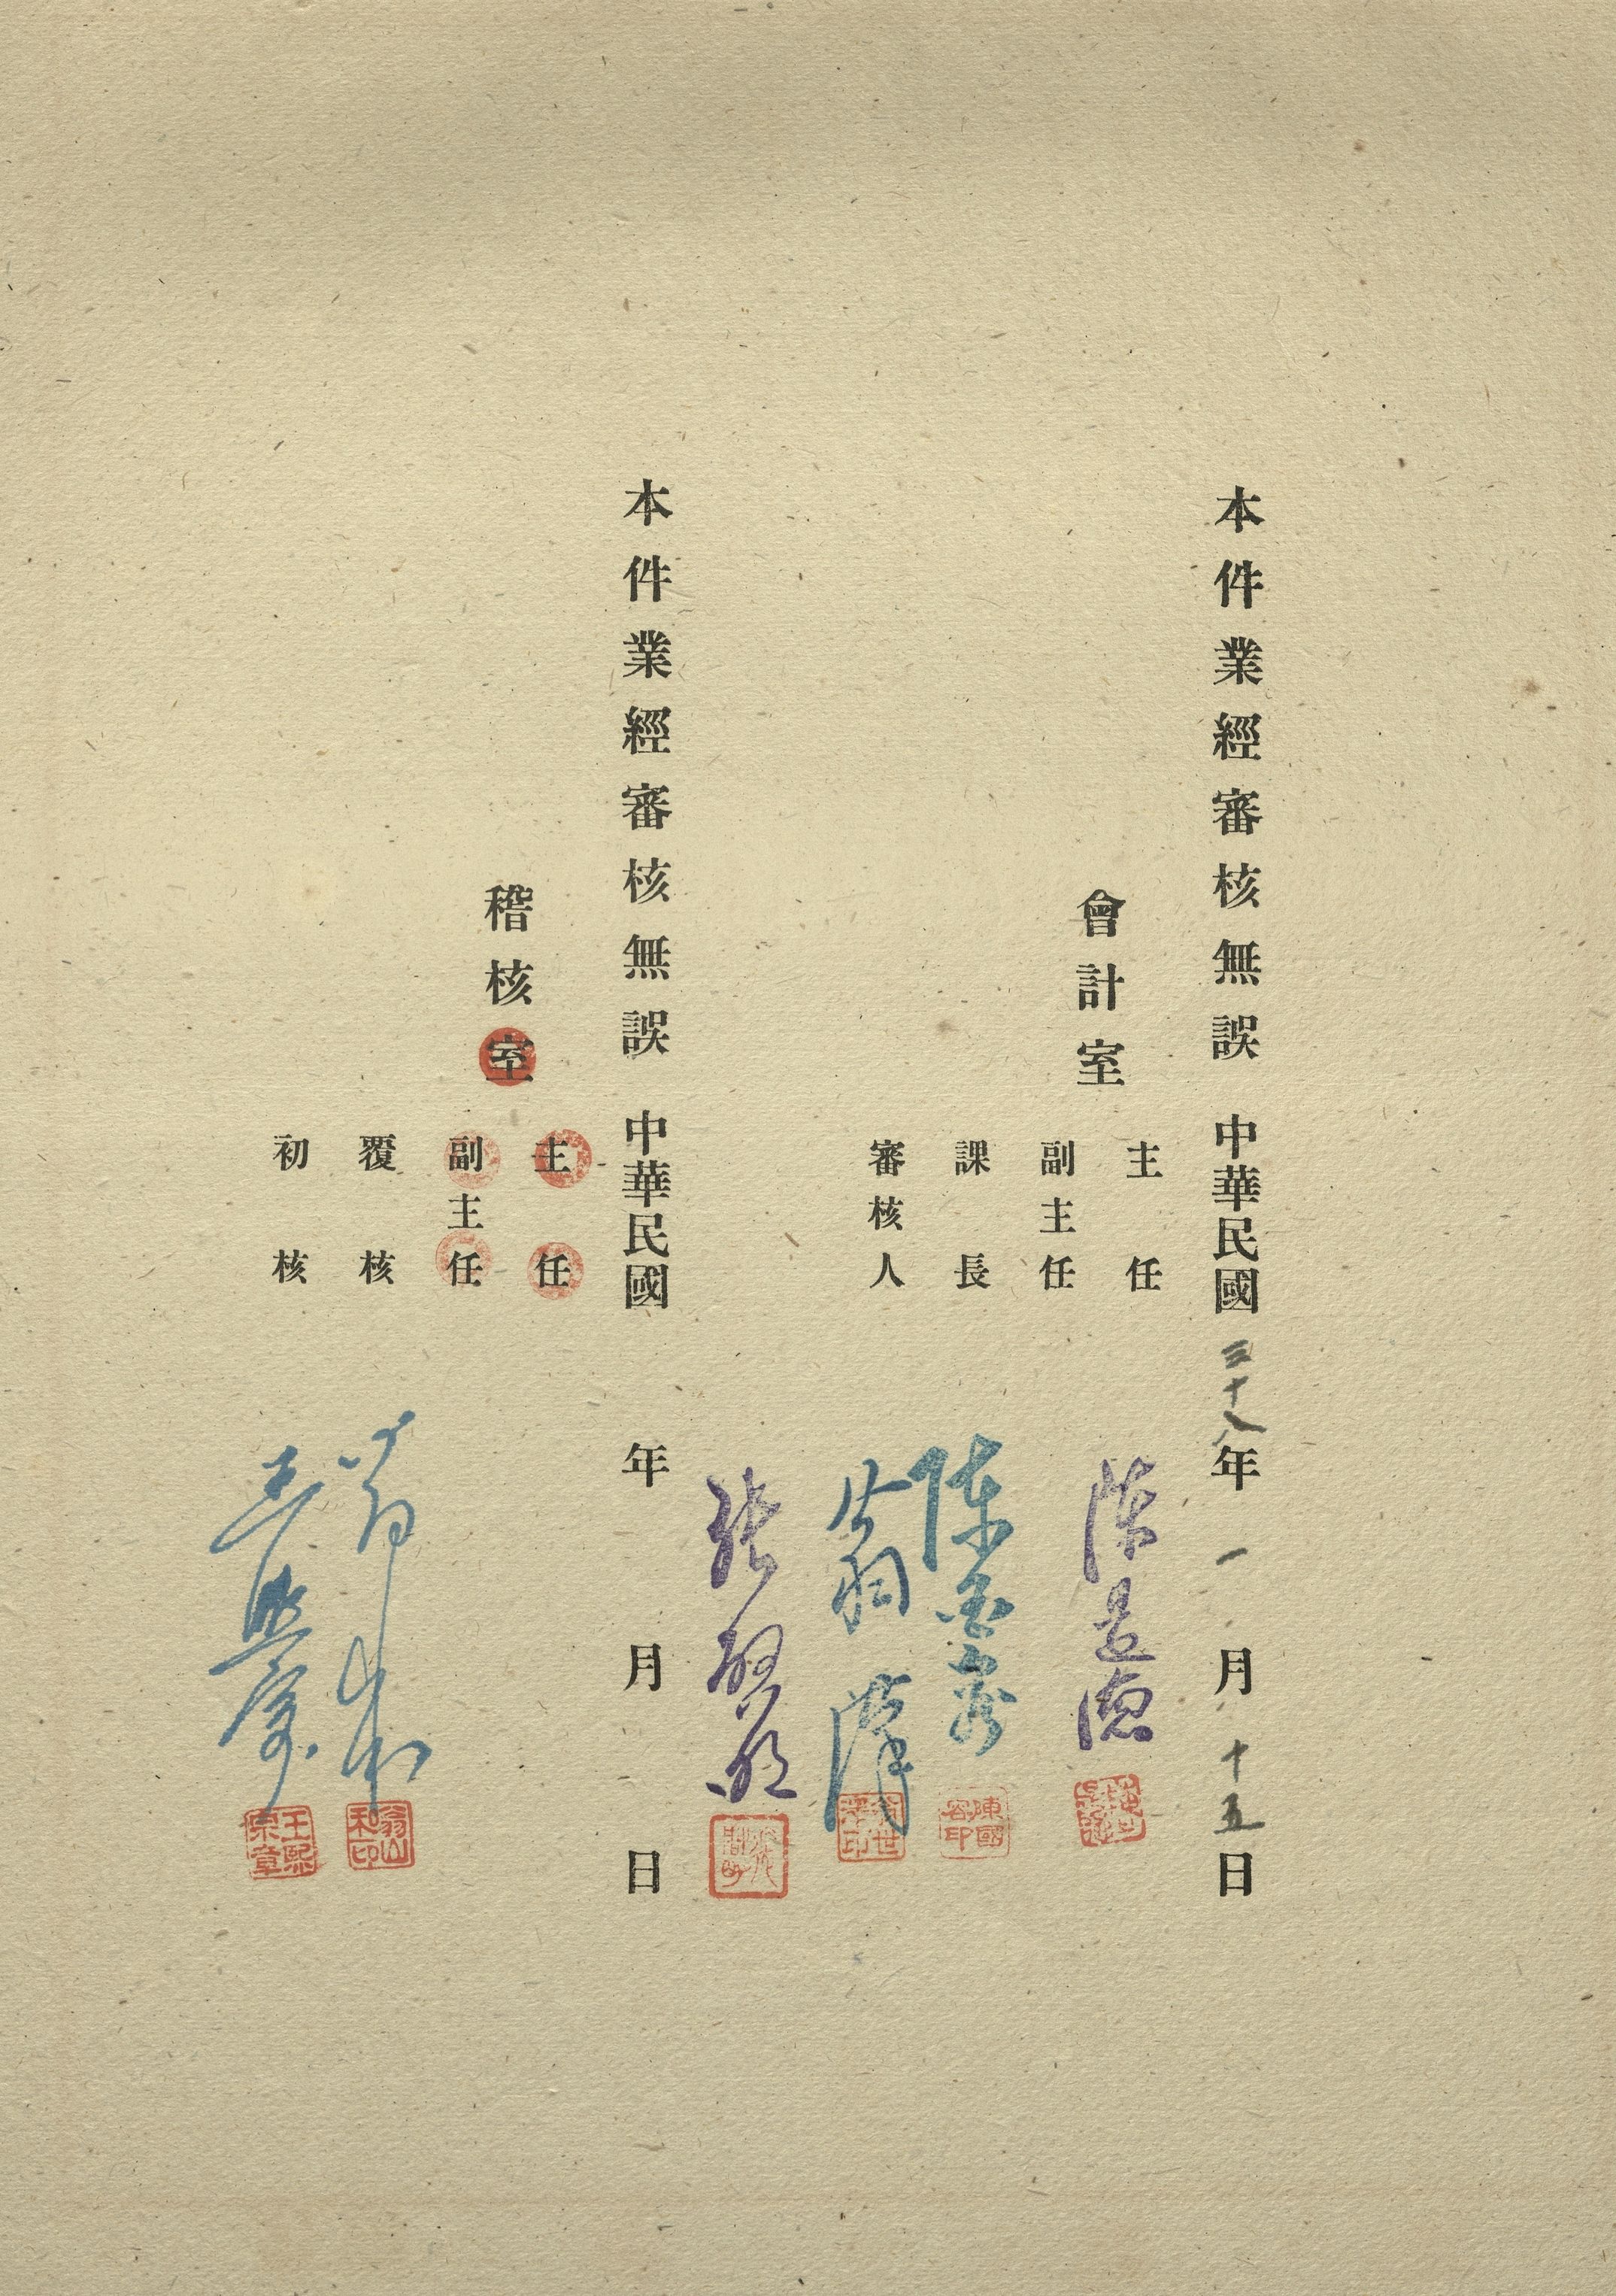 本件業經審核無誤 中華民國三十八年一月十五日
會計室
主任
副主任
課長 陳國容
審核人 翁世澤
本件業經審核無誤 中華民國 年 月 日
稽核室
主任
副主任
覆核
初核 王熙宗
陳國容印
翁山禾印
王熙宗章